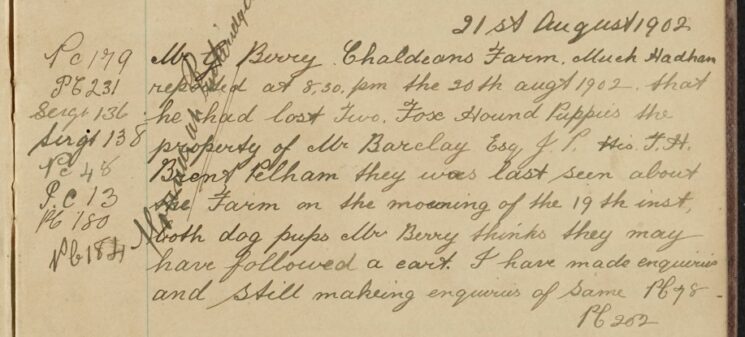 21st August 1902
Pc 179
PC 231
Sergt 136
Sergt 138
Pc 48
P.C 13
PC 180
PC 184
Mr Berry. Chaldeans Farm. Much Hadham
reported at 8,30, pm the 20th augt 1902. that
he had lost Two. Fox Hound Puppies the
property of Mr Barclay Esq J. P. His F. H.
Brent Pelham they was last seen about
the Farm on the morning of the 19th inst,
both dog pups Mr Berry thinks they may
have followed a cart. I have made enquiries
and still makeing enquiries of same PC 78
PC 202